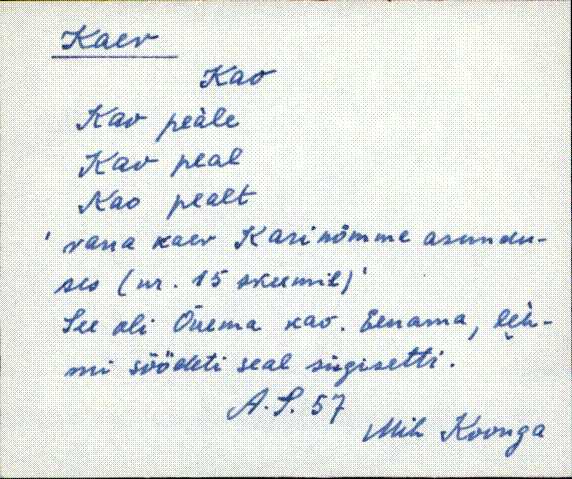 Kaev
Kao
Kao peàle
Kao peal
Kao pealt
'vana kaev Karinõmme asundu-
ses (nr. 15 skeemil)'
See oli Õuema kao. Eenama, leh-
mi söödeti seal sügisetti.
A. S. 57
Mih Koonga